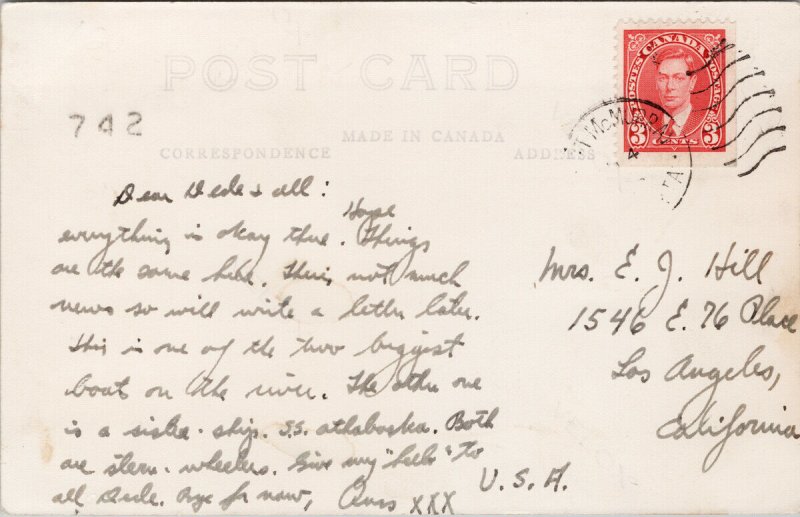 POST CARD
POSTES CANADA POSTAGE
3 CENTS 3
T McMURRA
4
TA
742
MADE IN CANADA
CORRESPONDENCE
ADDRESS
Dear Dede & all:
Hope
everything is okay there. Things
are the same here. There's not much
news so will write a letter later.
This is one of the two biggest
boat on the river. The other one
is a sister-ship. S.S. Athabaska. Both
are stern-wheelers. Give my "hello" to
all Dede. Bye for now, XXX
Mrs. E. J. Hill
1546 E. 76 Place
Los Angeles,
California
U.S.A.